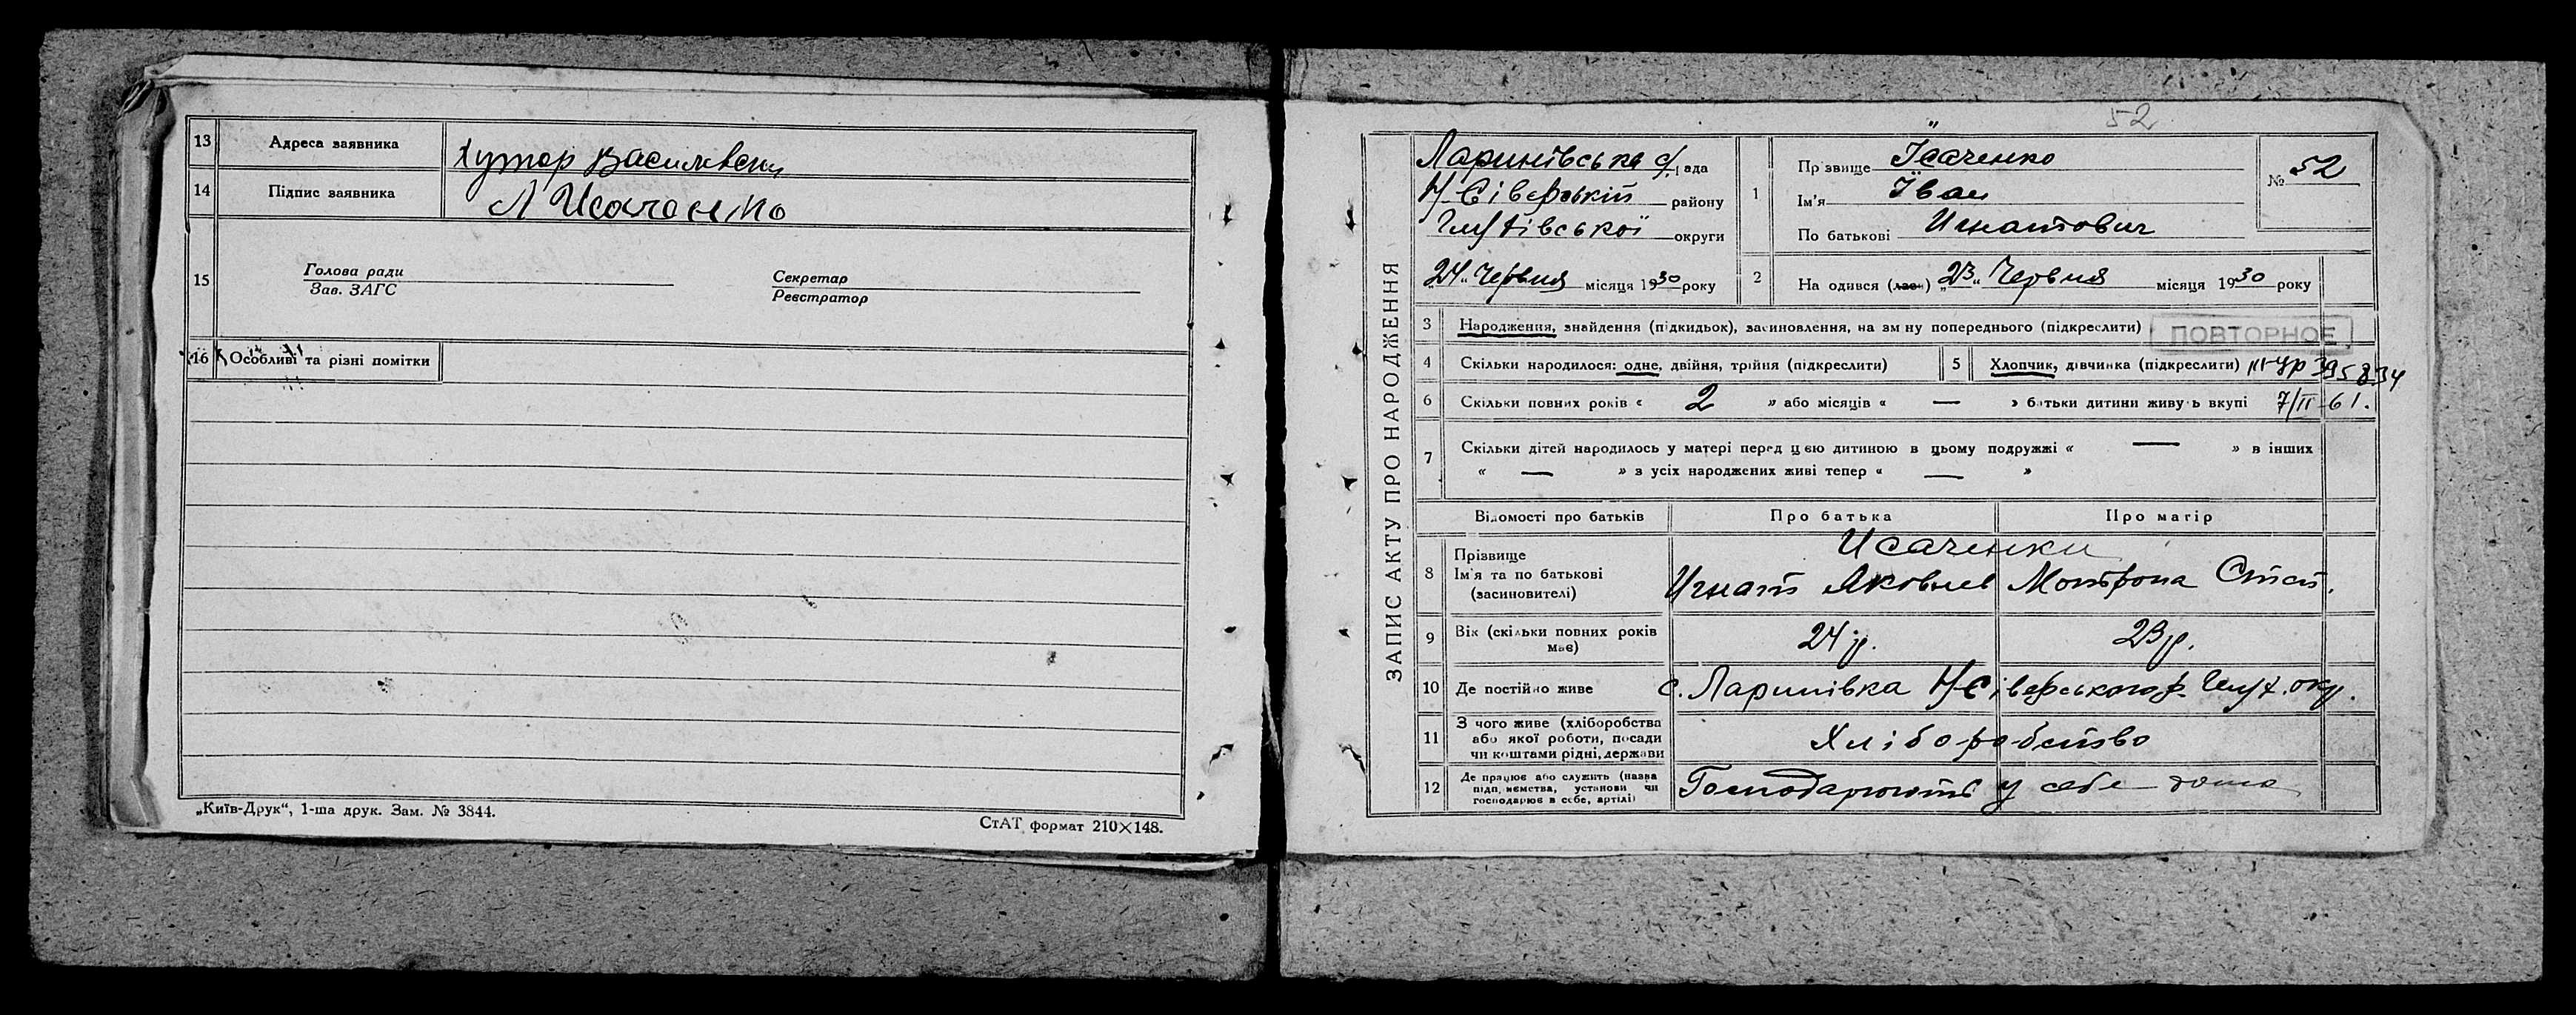 13 Адреса заявника Хутор Василевский
14 Підпис заявника Исаченко
15 Голова ради Секретар
Зав. ЗАГС Реєстратор
16 Особливі та різні помітки
„Київ-Друк“, 1-ша друк. Зам. № 3844.
СтАТ формат 210×148.
52
ЗАПИС АКТУ ПРО НАРОДЖЕННЯ
Ларинівська с/рада
Н-Сіверській району
Глухівської округи
„24“ Червня місяця 1930 року
1 Прізвище Ісаченко
Ім'я Іван
По батькові Игнатович
№ 52
2 На одився (лась) „23“ Червня місяця 1930 року
3 Народження, знайдення (підкидьок), засиновлення, на зм ну попереднього (підкреслити)
ПОВТОРНОЕ
4 Скільки народилося: одне, двійня, трійня (підкреслити)
5 Хлопчик, дівчинка (підкреслити) 395834
6 Скільки повних років « 2 » або місяців « — » батьки дитини живуть вкупі 7/II-61.
7 Скільки дітей народилось у матері перед цією дитиною в цьому подружжі « — » в інших
« — » з усіх народжених живі тепер « — »
Відомості про батьків Про батька Про матір
8 Прізвище
Ім'я та по батькові
(засиновителі)
Исаченки
Игнат Яковлев Мотрона Степ.
9 Вік (скільки повних років
має)
24 р. 23 р.
10 Де постійно живе с. Ларинівка Н-Сіверського р. Глух. окр.
11 З чого живе (хліборобства
або якої роботи, посади
чи коштами рідні, держави
Хліборобство
12 Де працює або служить (назва
підприємства, установи чи
господарює в себе, артілі)
Господарюють у себе дома